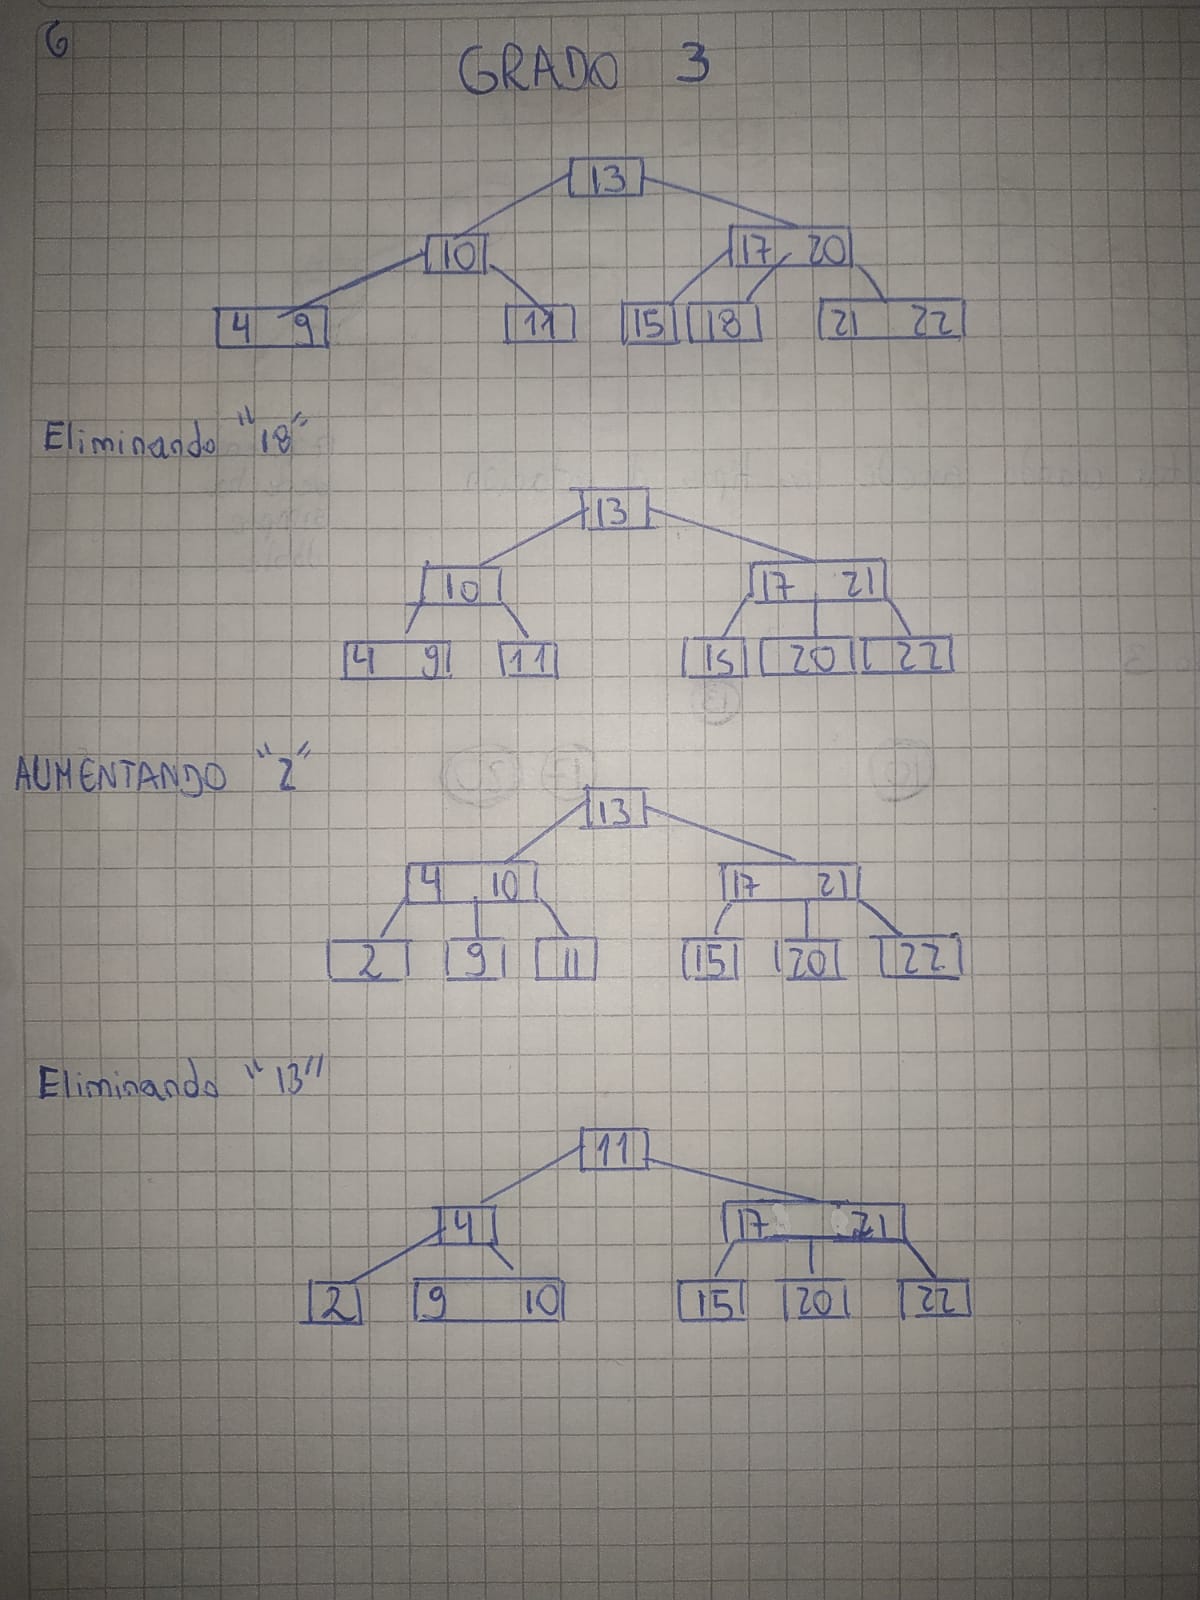 6
GRADO 3
13
10 17 20
4 9 11 15 18 21 22
Eliminando "18"
13
10 17 21
4 9 11 15 20 22
AUMENTANDO "2"
13
4 10 17 21
2 9 11 15 20 22
Eliminando "13"
11
4 17 21
2 9 10 15 20 22